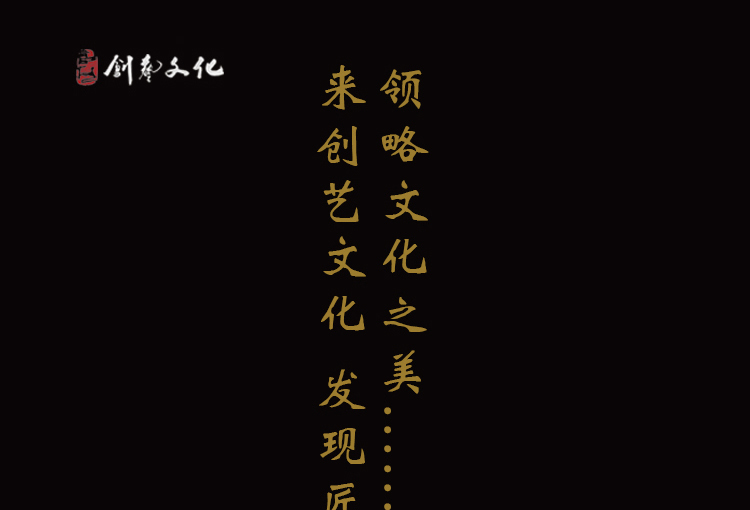 创艺文化
来创艺文化 发现匠
领略文化之美……